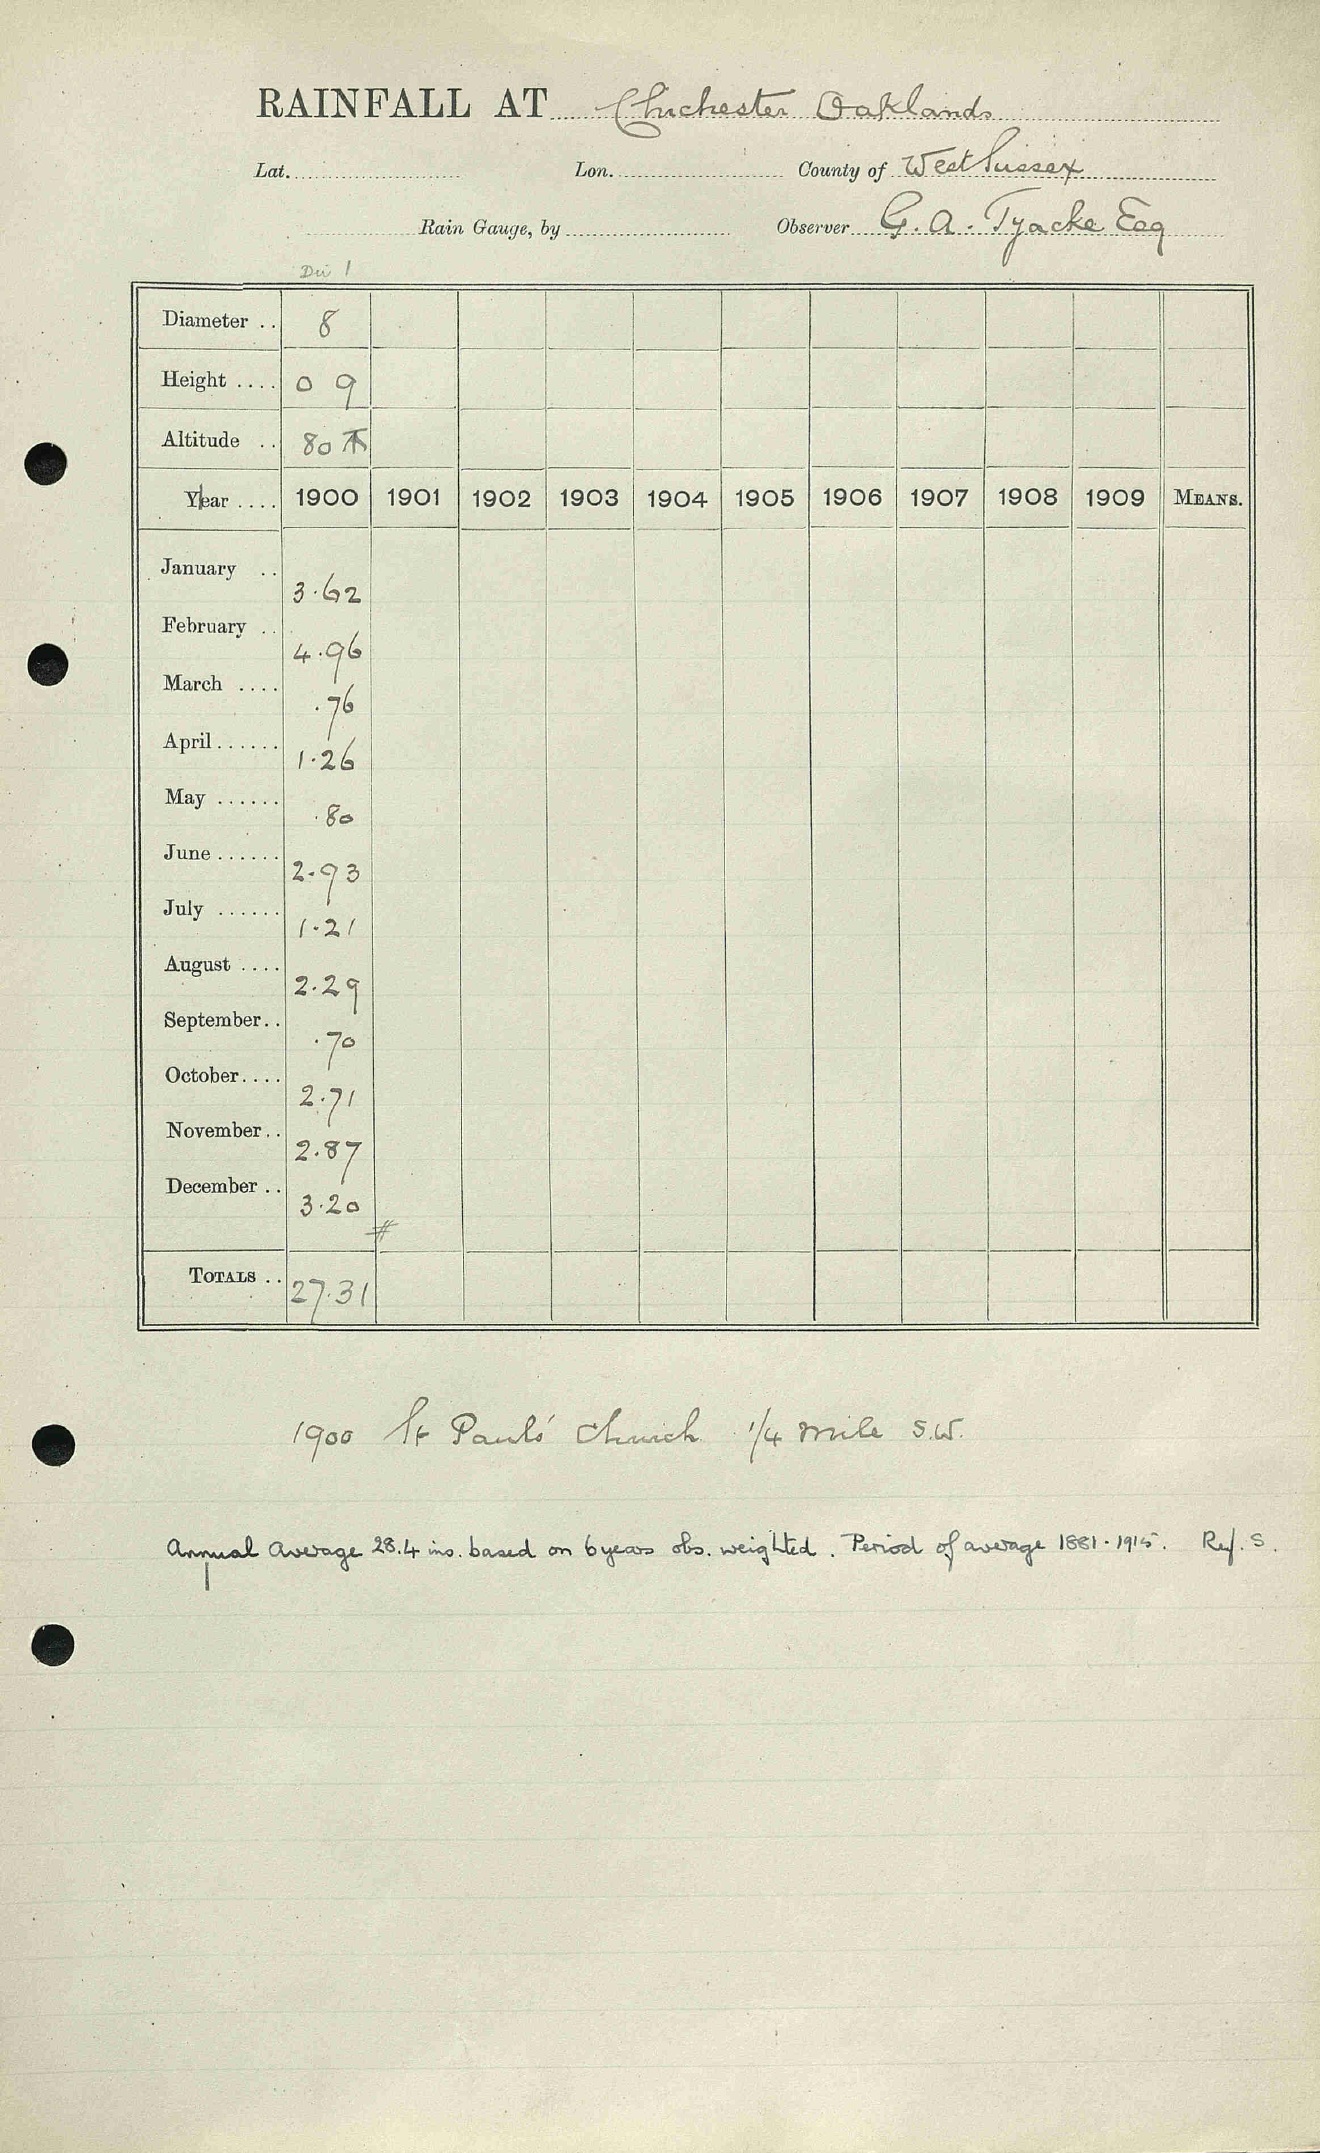 RAINFALL AT Chichester Oaklands
Lat. Lon. County of West Sussex
Rain Gauge, by Observer G. A. Tyacke Esq
Div 1
Diameter .. 8
Height .... 0 9
Altitude .. 80
Year .... 1900 1901 1902 1903 1904 1905 1906 1907 1908 1909 MEANS.
January .. 3.62
February .. 4.96
March .... .76
April...... 1.26
May ...... .80
June...... 2.93
July ...... 1.21
August .... 2.29
September.. .70
October.... 2.71
November.. 2.87
December .. 3.20
#
TOTALS .. 27.31
1900 St Pauls' Church 1/4 mile S.W.
Annual Average 28.4 ins. based on 6 years obs. weighted. Period of average 1881-1915. Ref. S.